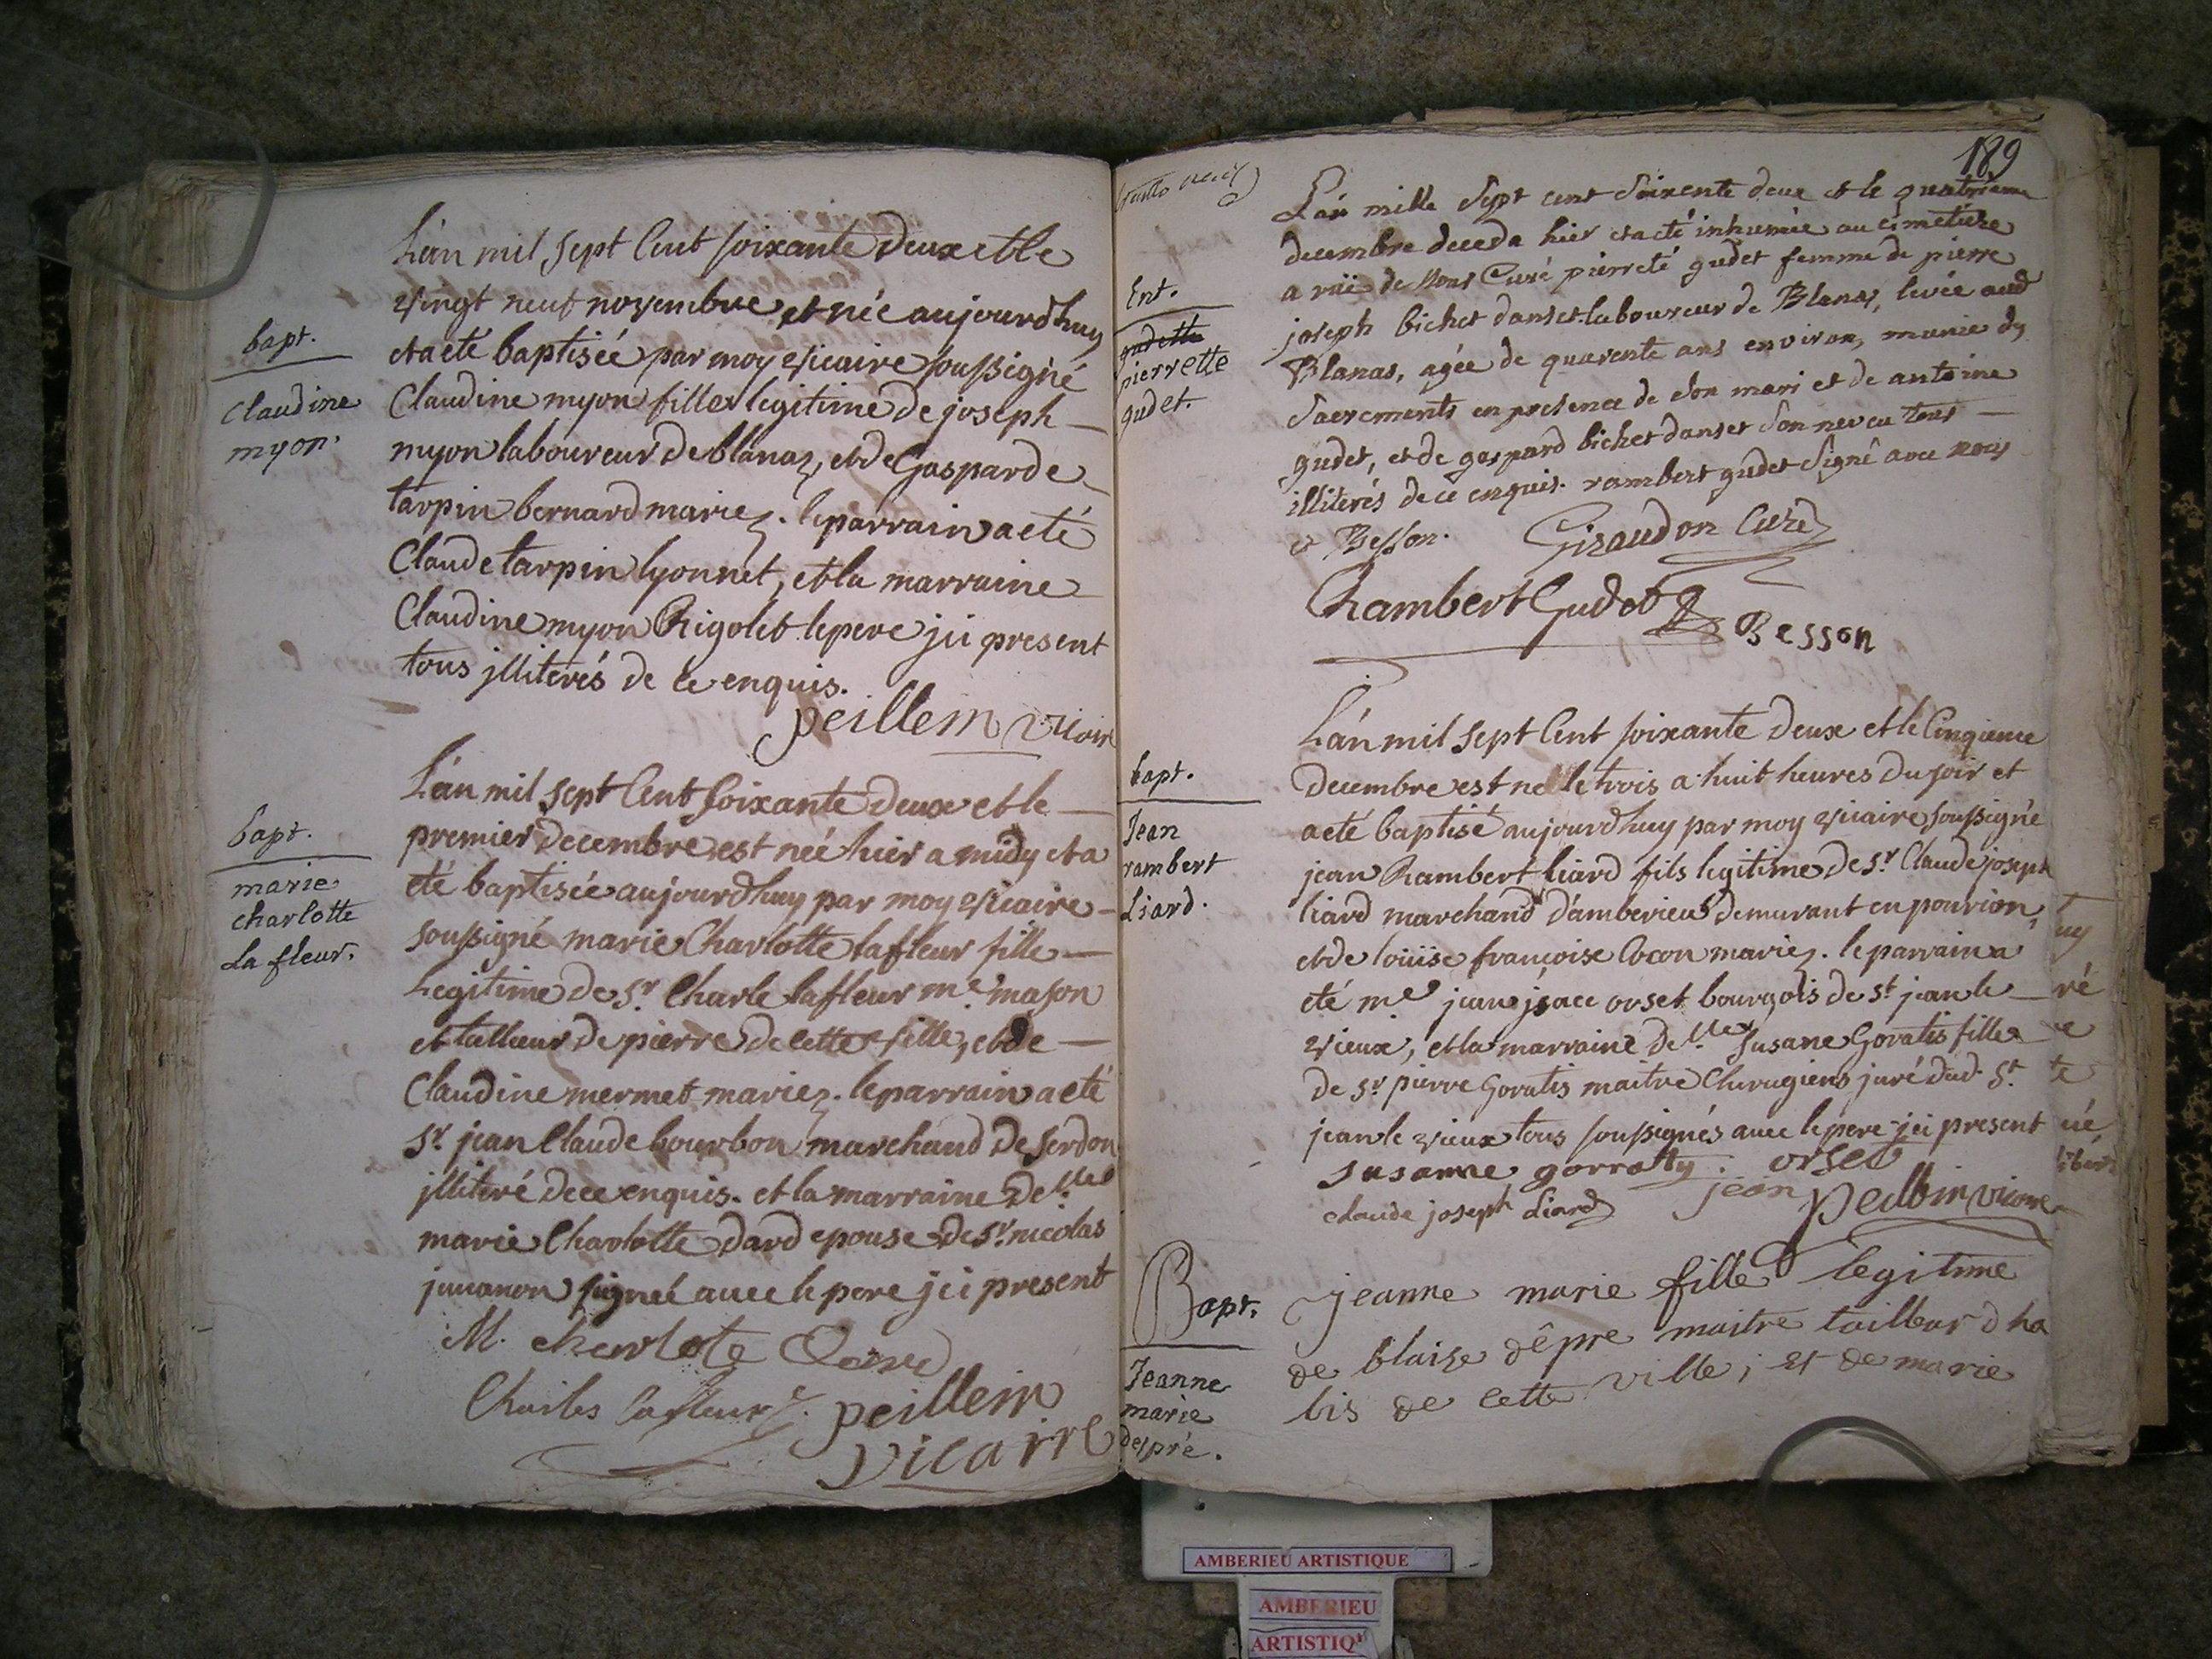 bapt.
Claudine
myon.
L'an mil sept Cent soixante Deux et le
vingt neuf novembre est née aujourdhuy
et a eté baptiséé par moy vicaire soussigné
Claudine myon fille legitime de joseph
myon laboureur de blanaz, et de Gasparde
tarpin bernard mariez. le parrain a eté
Claude tarpin lyonnet, et la marraine
Claudine myon Rigolet le pere jci present
tous jlliterés de ce enquis.
peillem vicair
bapt.
marie
charlotte
La fleur.
L'an mil sept Cent soixante Deux et le
premier decembre est néé hier a midy et a
eté baptiséé aujourdhuy par moy vicaire
soussigné marie Charlotte lafleur fille
Legitime de sr Charle lafleur me mason
et tallieur de pierre de cette ville, et de
Claudine mermet mariez. le parrain a eté
sr. jean Claude bourbon marchand de serdon
jlliteré de ce enquis. et la marraine Delle
marie Charlotte dard epouse de sr. nicolas
juuanon signéé avec le pere jci present
M. charlote
Charles lafleur. peillem
vicaire
189
Ent.
gudette
pierrette
gudet.
L'an mille sept cent soixente deux et le quatrieme
decembre deceda hier et a eté inhumée au cimetiere
a vüe de nous Curé pierreté gudet femme de pierre
joseph bichet danset laboureur de Blanaz, levée aud
Blanas, agée de quarente ans environ, munie des
sacrements en presence de son mari et de antoine
gudet, et de gaspard bichet danset son neveu tous
illiterés de ce enquis. rambert gudet signé avec nous
et Besson. Giraudon Curé
Chambert Gudet Besson
bapt.
Jean
rambert
Liard.
L'an mil sept Cent soixante Deux et le Cinquieme
Decembre est né le trois a huit heures du soir et
a eté baptisé aujourdhuy par moy vicaire soussigné
jean Rambert liard fils legitime de sr. Claude joseph
liard marchand d'amberieu demurant en pourion,
et de loüise françoise Cocon mariez. le parrain a
eté me jean jsaac orset bourgois de st jean le
vieux, et la marraine delle Susane Goratis fille
de sr pierre Goratis maitre Chirugiens juré dud. st.
jean le vieux tous soussignés avec le pere jci present
susanne gorratty. orset
claude joseph Liard jean peillem vicaire
Bapt.
Jeanne
marie
despré.
jeanne marie fille legitime
de blaise dêpre maitre tailleur dha
bis de cette ville; et de marie
AMBERIEU ARTISTIQUE
AMBERIEU
ARTISTIQ